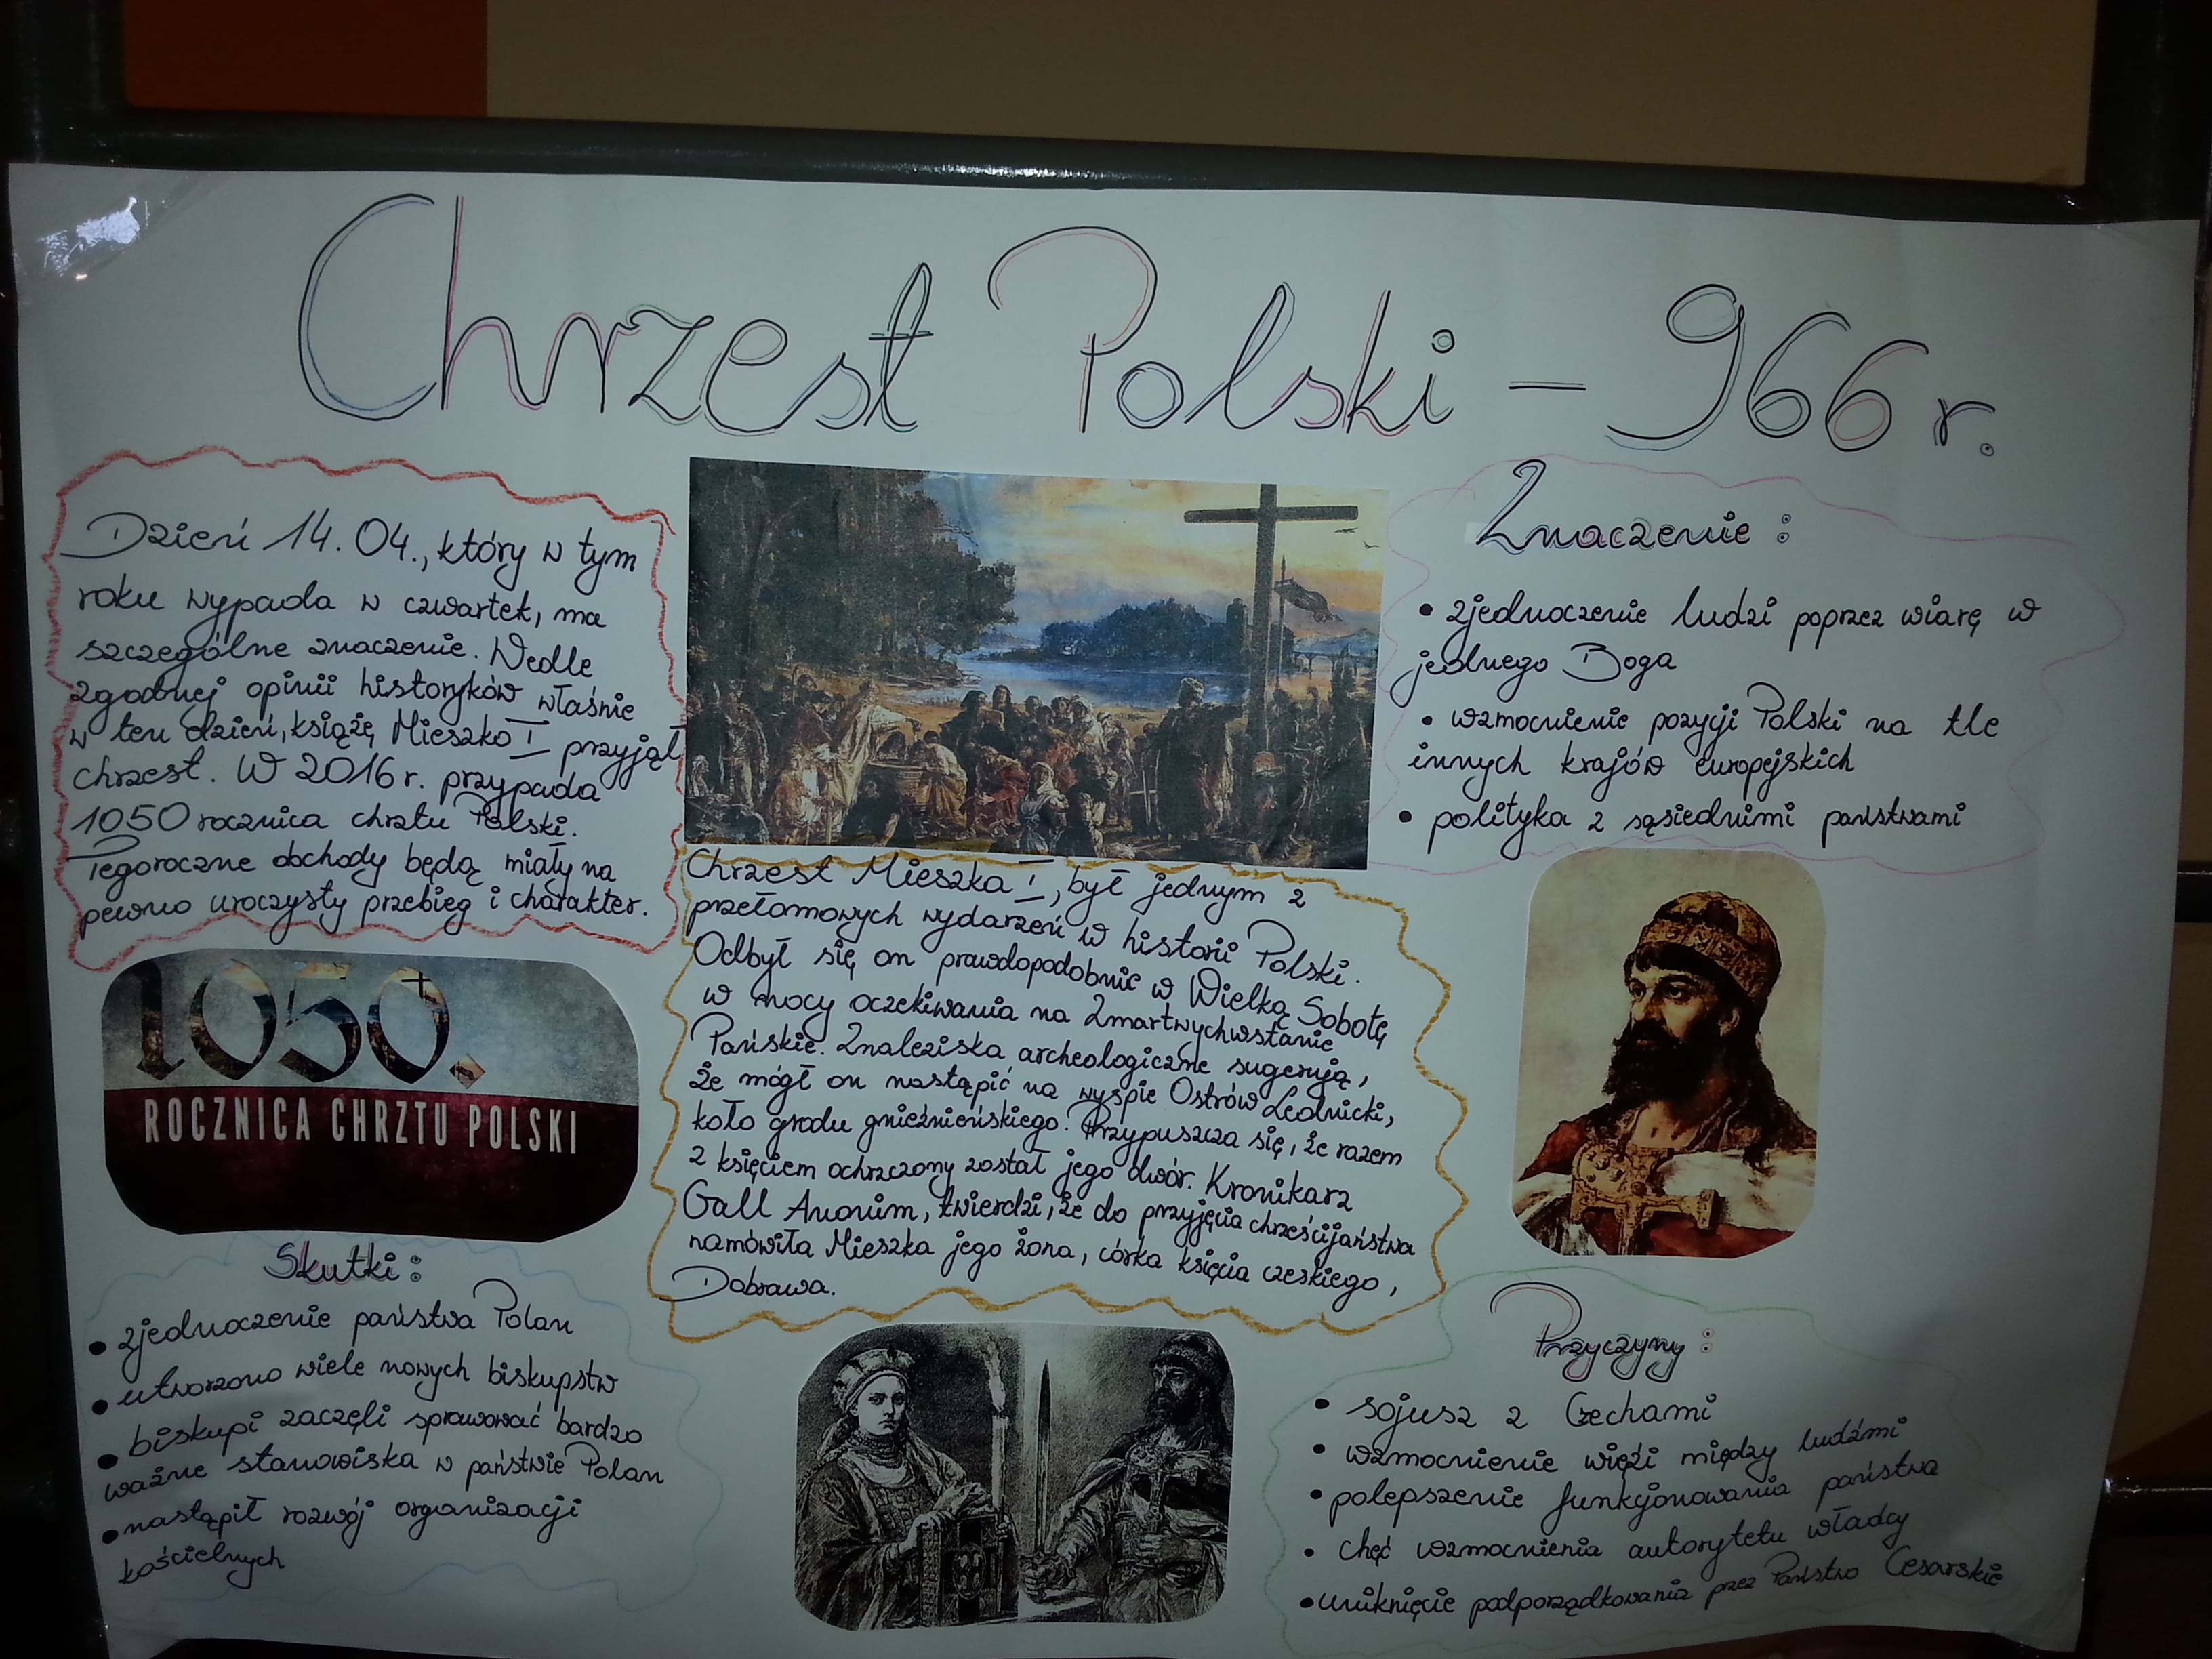 Chrzest Polski – 966 r.
Dzień 14. 04., który w tym
roku wypada w czwartek, ma
szczególne znaczenie. Wedle
zgodnej opinii historyków właśnie
w ten dzień, książę Mieszko I przyjął
chrzest. W 2016 r. przypada
1050 rocznica chrztu Polski.
Tegoroczne obchody będą miały na
pewno uroczysty przebieg i charakter.
1050.
ROCZNICA CHRZTU POLSKI
Skutki:
• zjednoczenie państwa Polan
• utworzono wiele nowych biskupstw
• biskupi zaczęli sprawować bardzo
ważne stanowiska w państwie Polan
• nastąpił rozwój organizacji
kościelnych
Chrzest Mieszka I, był jednym z
przełomowych wydarzeń w historii Polski.
Odbył się on prawdopodobnie w Wielką Sobotę
w nocy oczekiwania na Zmartwychwstanie
Pańskie. Znaleziska archeologiczne sugerują,
że mógł on nastąpić na wyspie Ostrów Lednicki,
koło grodu gnieźnieńskiego. Przypuszcza się, że razem
z księciem ochrzczony został jego dwór. Kronikarz
Gall Anonim, twierdzi, że do przyjęcia chrześcijaństwa
namówiła Mieszka jego żona, córka księcia czeskiego,
Dobrawa.
Znaczenie:
• zjednoczenie ludzi poprzez wiarę w
jednego Boga
• wzmocnienie pozycji Polski na tle
innych krajów europejskich
• polityka z sąsiednimi państwami
Przyczyny:
• sojusz z Czechami
• wzmocnienie więzi między ludźmi
• polepszenie funkcjonowania państwa
• chęć wzmocnienia autorytetu władcy
• uniknięcie podporządkowania przez Państwo Cesarskie